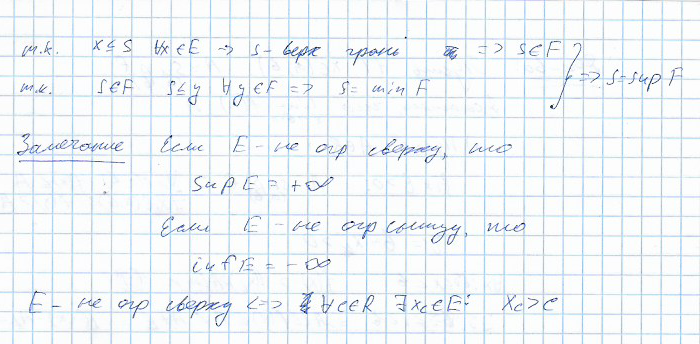 т.к. x ≤ s ∀x∈E -> s - верх грань => s∈F
т.к. s∈F s ≤ y ∀y∈F => s = min F } => s = sup F
Замечание Если E - не огр сверху, то
sup E = +∞
Если E - не огр снизу, то
inf E = -∞
E - не огр сверху <=> ∀c∈R ∃x_c∈E: x_c > c